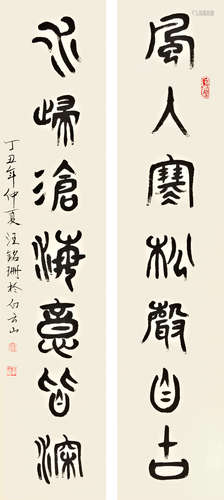 風入寒松聲自古
水歸滄海意皆深
丁丑年仲夏汪銘珊於白云山